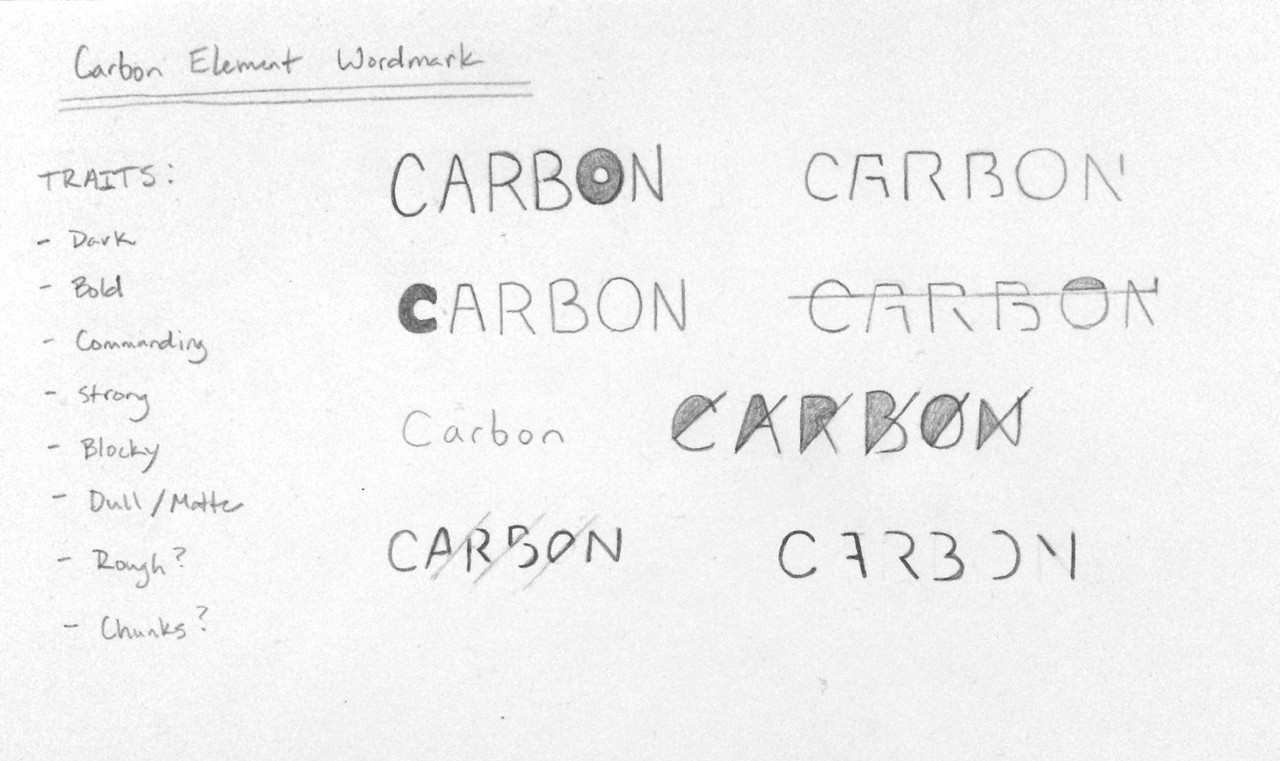 Carbon Element Wordmark
TRAITS:
- Dark
- Bold
- Commanding
- Strong
- Blocky
- Dull/Matte
- Rough?
- Chunks?
CARBON
CARBON
CARBON
CARBON
Carbon
CARBON
CARBON
CARBON